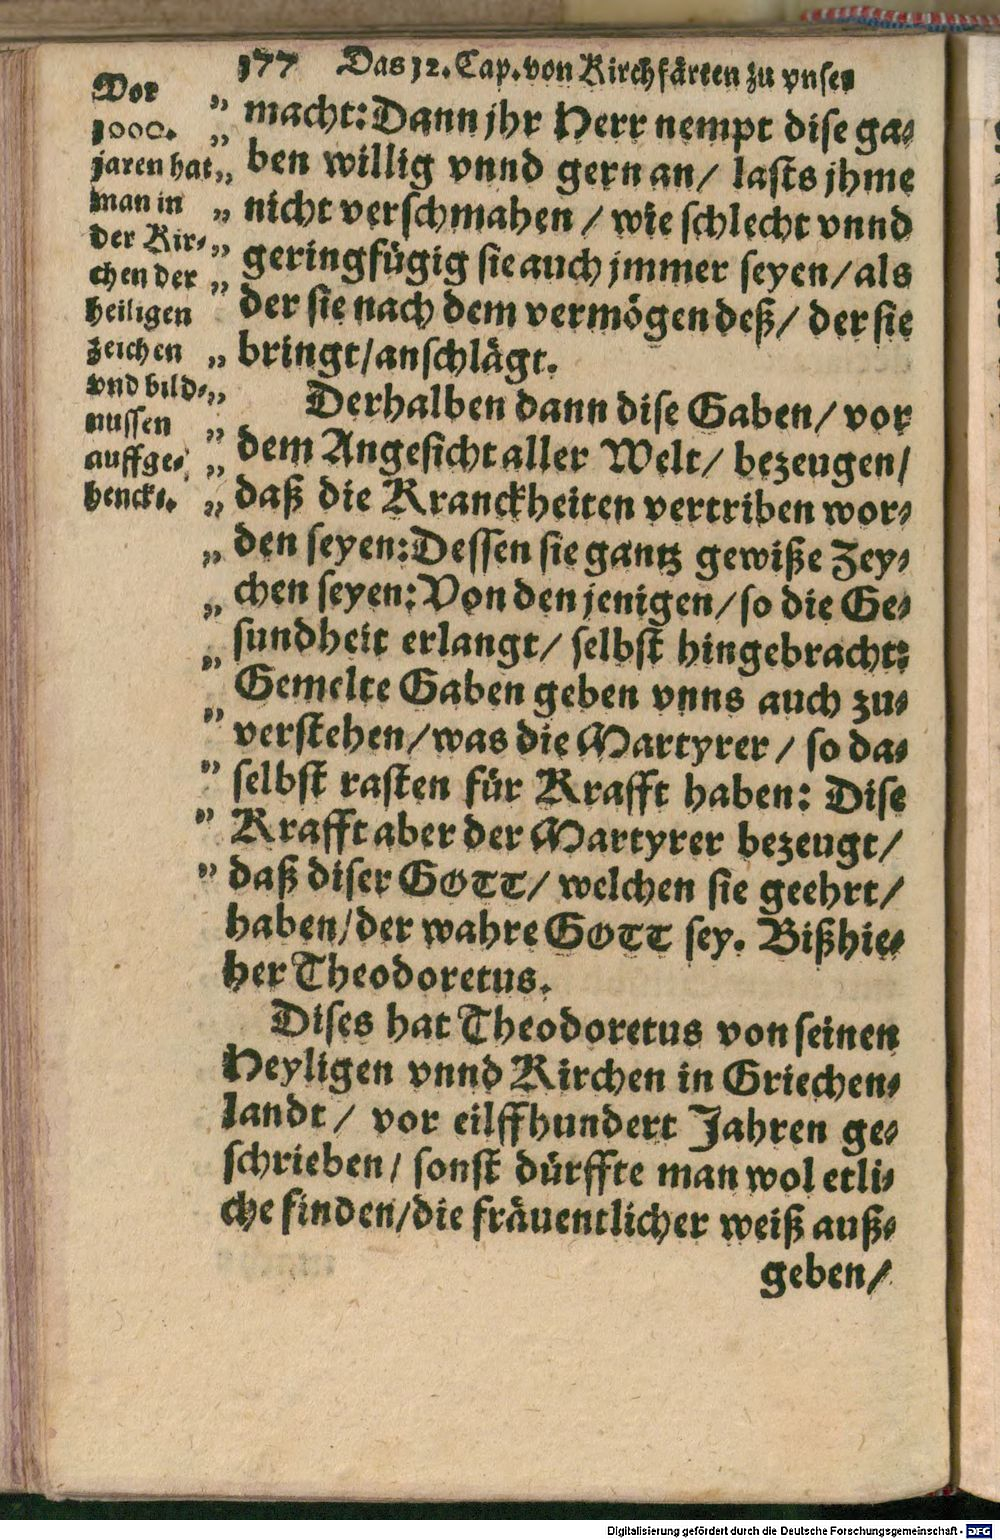 177 Das 12. Cap. von Kirchfärten zu vnser
Vor
1000.
jaren hat
man in
der Kir-
chen der
heiligen
zeichen
vnd bild-
nussen
auffge-
henckt.
macht: Dann jhr Herr nempt dise ga-
ben willig vnnd gern an / lasts jhme
nicht verschmahen / wie schlecht vnnd
geringfügig sie auch jmmer seyen / als
der sie nach dem vermögen deß / der sie
bringt / anschlägt.
Derhalben dann dise Gaben / vor
dem Angesicht aller Welt / bezeugen /
daß die Kranckheiten vertriben wor-
den seyen: Dessen sie gantz gewiße Zey-
chen seyen: Von den jenigen / so die Ge-
sundheit erlangt / selbst hingebracht:
Gemelte Gaben geben vnns auch zu-
verstehen / was die Martyrer / so da-
selbst rasten für Krafft haben: Dise
Krafft aber der Martyrer bezeugt /
daß diser GOTT / welchen sie geehrt /
haben / der wahre GOTT sey. Bißhie-
her Theodoretus.
Dises hat Theodoretus von seinen
Heyligen vnnd Kirchen in Griechen-
landt / vor eilffhundert Jahren ge-
schrieben / sonst dürffte man wol etli-
che finden / die fräuentlicher weiß auß-
geben /
Digitalisierung gefördert durch die Deutsche Forschungsgemeinschaft - DFG